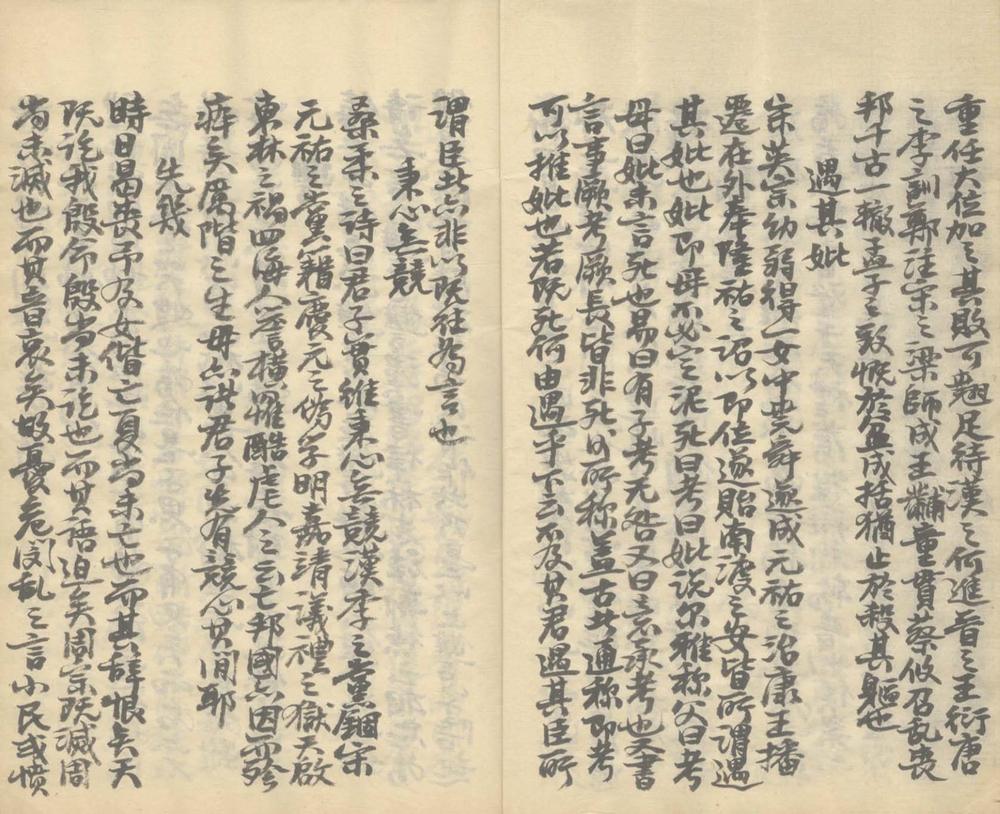 重任大位加之其敗可翹足待漢之何進晉之王衍唐
之李訓鄭注宋之梁師成王黼童貫蔡攸召乱丧
邦千古一轍孟子之致慨於盆成括猶止於殺其軀也
遇其妣
宋英宗幼弱得一女中堯舜遂成元祐之治康王播
遷在外奉隆祐之诏以即位遂贻南渡之安皆所謂遇
其妣也妣即母不必定泥死曰考曰妣说尔雅称父曰考
母曰妣未言死也易曰有子考无咎又曰意承考也又書
言事厥考厥長皆非死后所称盖古者通称即考
可以推妣也若既死何由遇乎下云不及其君遇其臣所
謂臣者亦非以既往為言也
秉心无競
桑柔之詩曰君子實維秉心无競漢季之黨錮宋
元祐之黨籍慶元之偽学明嘉靖議禮之獄天啟
東林之禍四海人荼橫罹酷虐人之云亡邦國亦因而殄
瘁矣厲階之生毋亦諸君子先有競心其间耶
先幾
時日曷丧予及女偕亡夏尚未亡也而其辞恨矣天
既訖我殷命殷尚未訖也而其语迫矣周宗既滅周
尚未滅也而其音哀矣故憂危闵乱之言小民或愤